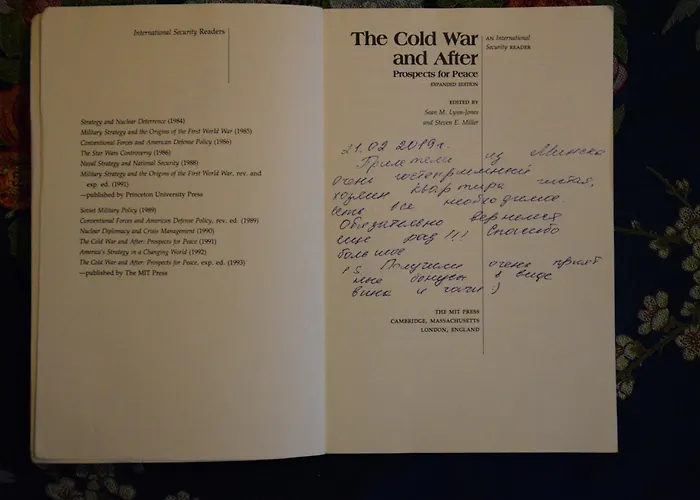 International Security Readers
Strategy and Nuclear Deterrence (1984)
Military Strategy and the Origins of the First World War (1985)
Conventional Forces and American Defense Policy (1986)
The Star Wars Controversy (1986)
Naval Strategy and National Security (1988)
Military Strategy and the Origins of the First World War, rev. and
exp. ed. (1991)
—published by Princeton University Press
Soviet Military Policy (1989)
Conventional Forces and American Defense Policy, rev. ed. (1989)
Nuclear Diplomacy and Crisis Management (1990)
The Cold War and After: Prospects for Peace (1991)
America's Strategy in a Changing World (1992)
The Cold War and After: Prospects for Peace, exp. ed. (1993)
—published by The MIT Press
The Cold War
and After
Prospects for Peace
EXPANDED EDITION
AN International
Security READER
EDITED BY
Sean M. Lynn-Jones
and Steven E. Miller
21.02 2019г.
Прилетели из Минска
Очень гостеприимный
хозяин квартира чистая,
есть все необходимое.
Обязательно вернемся
еще раз!!! Спасибо
большое
PS Получили очень прият
ные бонусы в виде
вина и чачи :)
THE MIT PRESS
CAMBRIDGE, MASSACHUSETTS
LONDON, ENGLAND